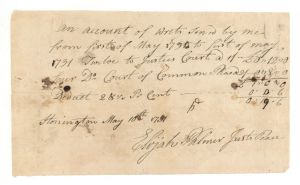 an account of Writs Sign'd by me
from first of May 1790 to first of may
1791 Twelve to Justices Court
four Do Court of Common Pleas
Deduct 2½ Pr Cent
0 19 6
Stonington May 10th 1791
Elijah Palmer Just Peace